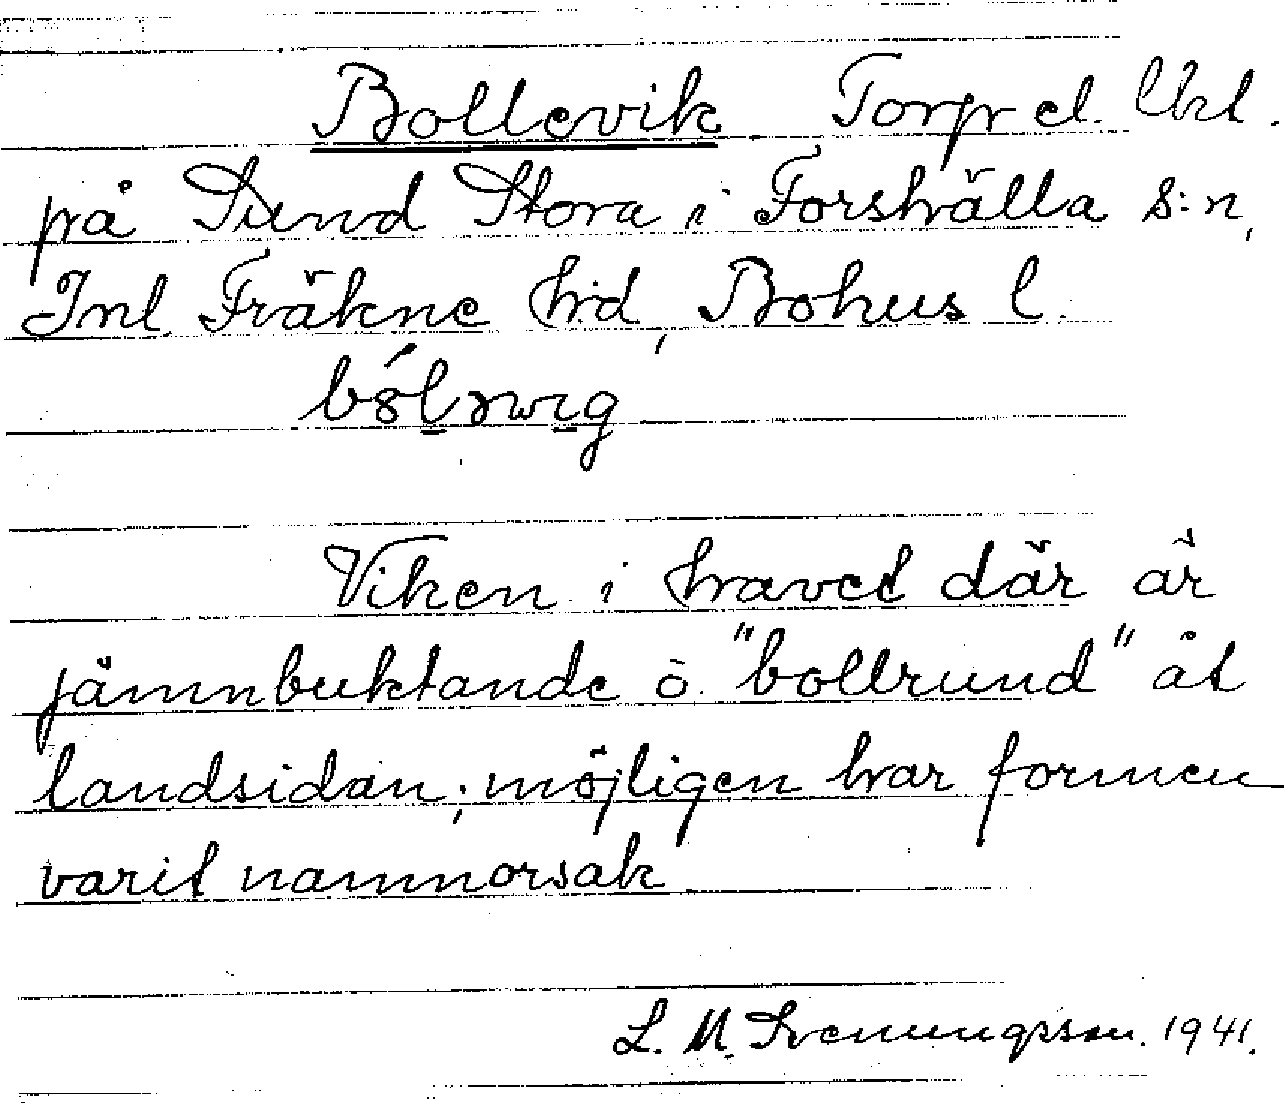 Bollevik Torp el. lht.
på Sund Stora i Forshälla s:n,
Inl. Fräkne hd, Bohus l.
Viken i havet där är
jämnbuktande o. "bollrund" åt
landsidan; möjligen har formen
varit namnorsak
L. M. Svenungsson. 1941.